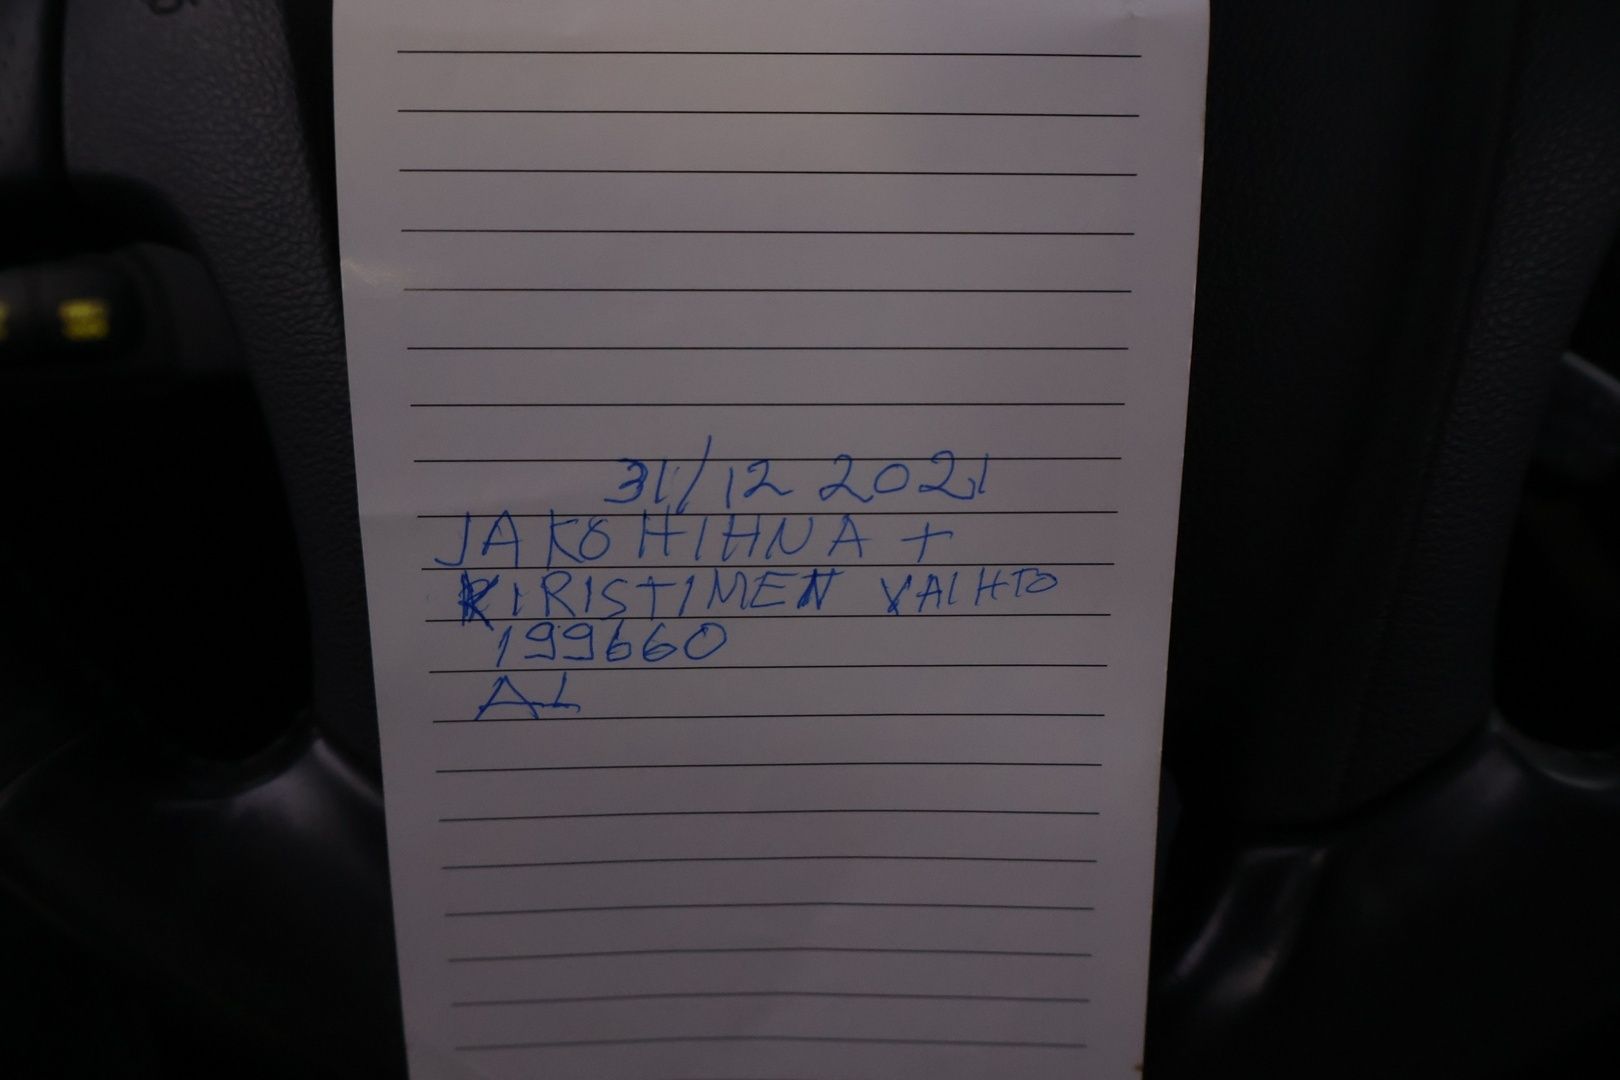 31/12 2021
JAKOHIHNA +
KIRISTIMEN VAIHTO
199660
AL